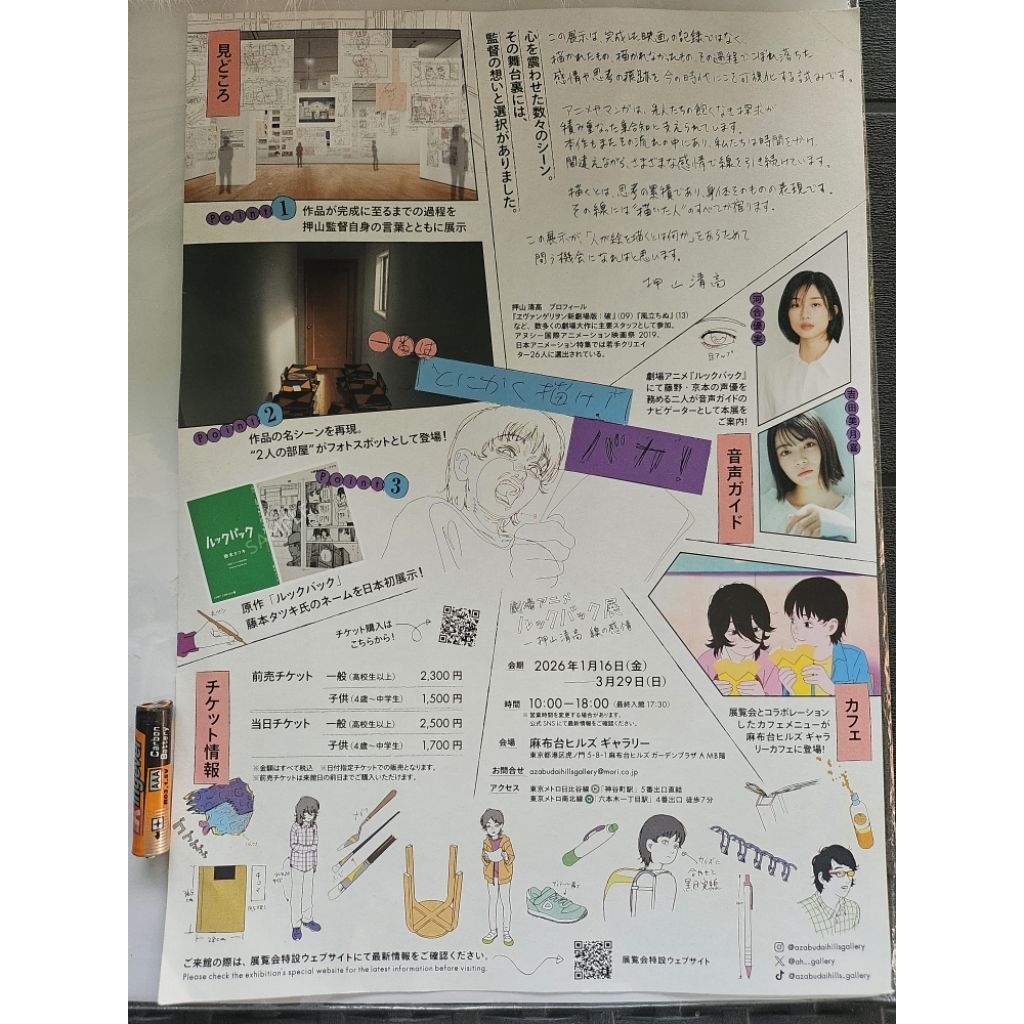 見どころ
心を震わせた数々のシーン。
その舞台裏には、
監督の想いと選択がありました。
この展示は、完成した映画の記録ではなく、
描かれたもの、描かれなかったもの、その過程でこぼれ落ちた
感情や思考の痕跡を今の時代にこそ可視化する試みです。
アニメやマンガは、先人たちの飽くなき探求が
積み重なった集合知に支えられています。
本作もまたその流れの中にあり、私たちは時間をかけ、
間違えながら、さまざまな感情で線を引き続けています。
描くとは、思考の累積であり、身体そのものの表現です。
その線には“描いた人”のすべてが宿ります。
この展示が、「人が絵を描くとは何か」をあらためて
問う機会になればと思います。
押山清高
Point 1
作品が完成に至るまでの過程を
押山監督自身の言葉とともに展示
押山 清高 プロフィール
『ヱヴァンゲリヲン新劇場版：破』(09)『風立ちぬ』(13)
など、数多くの劇場大作に主要スタッフとして参加。
アヌシー国際アニメーション映画祭 2019、
日本アニメーション特集では若手クリエイ
ター26人に選出されている。
河合優実
目アップ
劇場アニメ『ルックバック』
にて藤野・京本の声優を
務める二人が音声ガイドの
ナビゲーターとして本展を
ご案内!
吉田美月喜
音声ガイド
とにかく描け!
バカ!
Point 2
作品の名シーンを再現。
“2人の部屋”がフォトスポットとして登場!
Point 3
ルックバック
藤本タツキ
原作「ルックバック」
藤本タツキ氏のネームを日本初展示!
チケット購入は
こちらから!
劇場アニメ
ルックバック展
—押山清高 線の感情
チケット情報
前売チケット 一般(高校生以上) 2,300円
子供(4歳～中学生) 1,500円
当日チケット 一般(高校生以上) 2,500円
子供(4歳～中学生) 1,700円
※金額はすべて税込 ※日付指定チケットでの販売となります。
※前売チケットは来館日の前日までご購入いただけます。
会期 2026年1月16日(金)
——3月29日(日)
時間 10:00—18:00(最終入館17:30)
※営業時間を変更する場合があります。
公式SNSにて最新情報をご確認ください。
会場 麻布台ヒルズ ギャラリー
東京都港区虎ノ門5-8-1 麻布台ヒルズ ガーデンプラザA MB階
お問合せ azabudaihillsgallery@mori.co.jp
アクセス 東京メトロ日比谷線Ⓗ「神谷町駅」5番出口直結
東京メトロ南北線Ⓝ「六本木一丁目駅」4番出口 徒歩7分
カフェ
展覧会とコラボレーション
したカフェメニューが
麻布台ヒルズ ギャラ
リーカフェに登場!
28cm
ご来館の際は、展覧会特設ウェブサイトにて最新情報をご確認ください。
Please check the exhibition's special website for the latest information before visiting.
展覧会特設ウェブサイト
@azabudaihillsgallery
@ah_gallery
@azabudaihills_gallery
AAA
Carbon
Battery